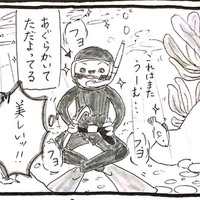 これはまた
うーむ…
フヨ
フヨ
フヨ
フヨ
あぐらかいて
ただよってる
美しいッ!!